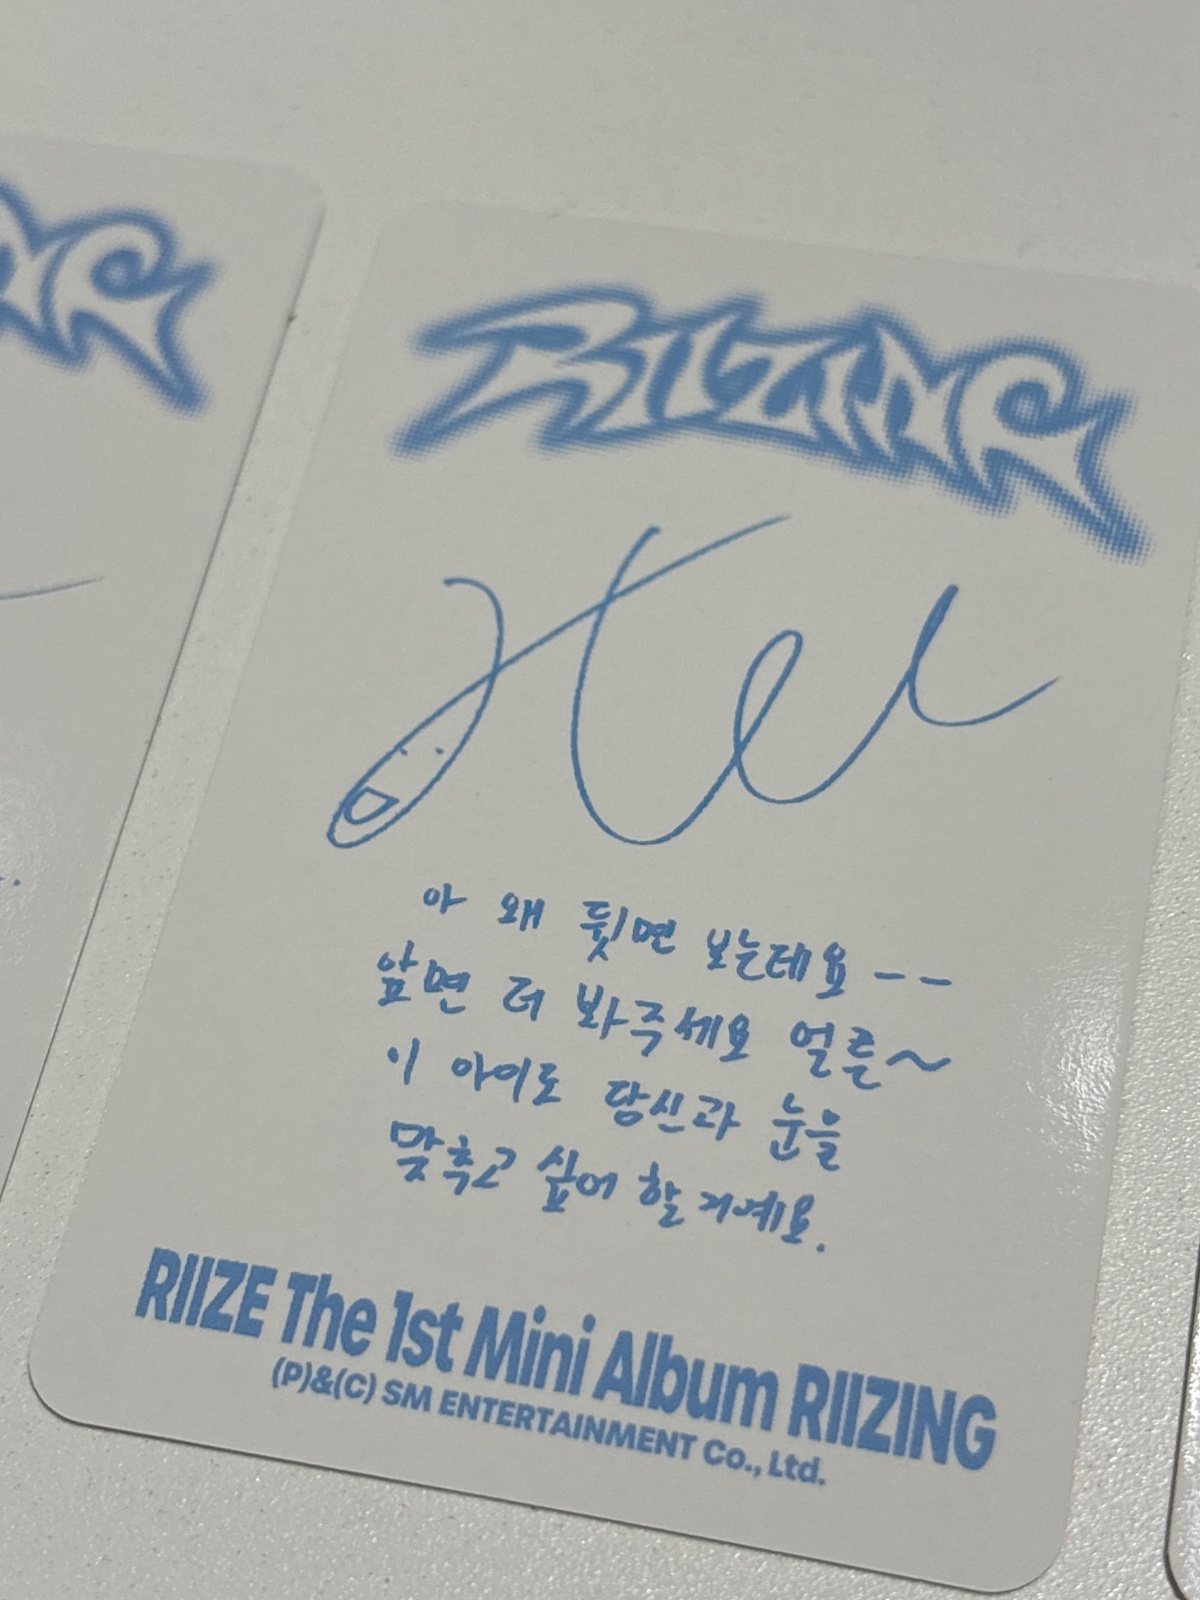 RIIZING
아 왜 뒷면 보는데요 --
앞면 더 봐주세요 얼른~
이 아이도 당신과 눈을
맞추고 싶어 할 거예요.
RIIZE The 1st Mini Album RIIZING
(P)&(C) SM ENTERTAINMENT Co., Ltd.